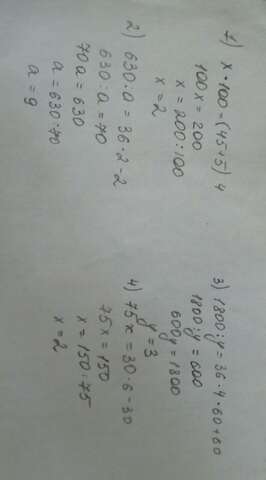 1) x · 100 = (45+5) 4
100x = 200
x = 200:100
x = 2
2) 630:a = 36·2-2
630:a = 70
70a = 630
a = 630:70
a = 9
3) 1800:y = 36·4·60+60
1800:y = 600
600y = 1800
y = 3
4) 75x = 30·6-30
75x = 150
x = 150:75
x = 2